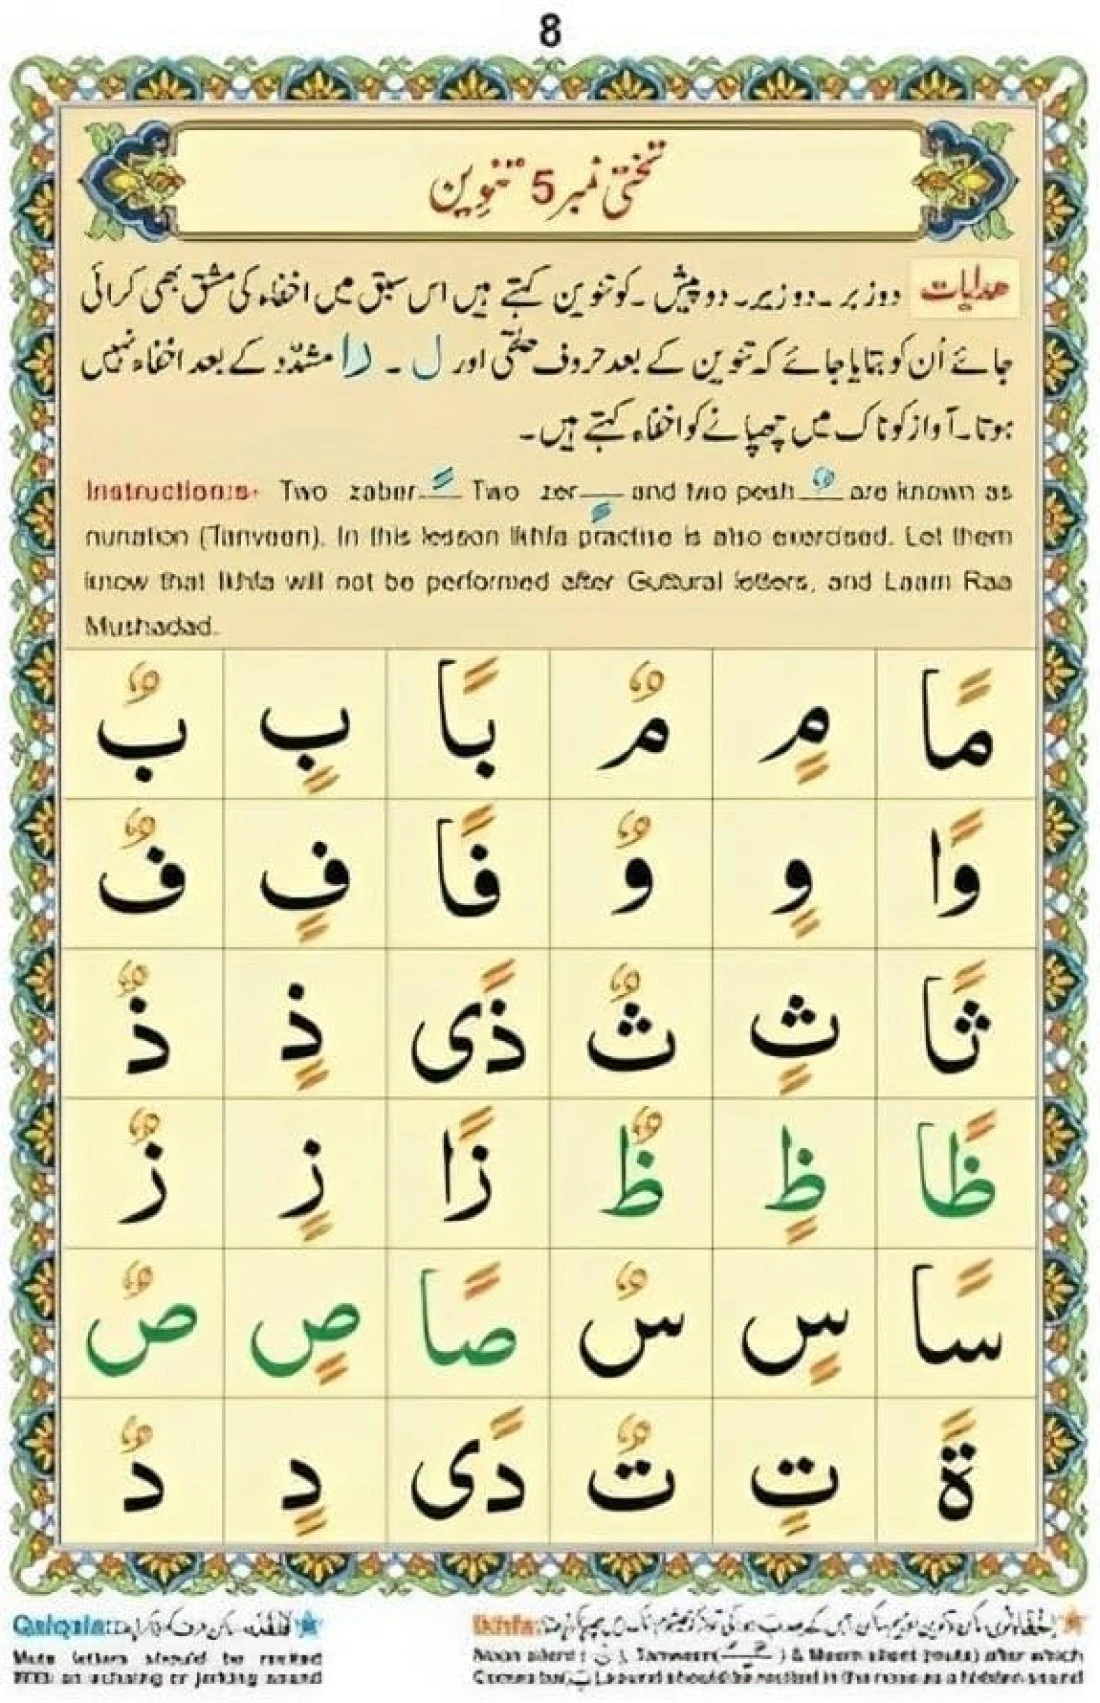 8
تختی نمبر 5 تنوین
ھدایات دو زبر ۔ دو زیر ۔ دو پیش ۔ کو تنوین کہتے ہیں اس سبق میں اخفاء کی مشق بھی کرائی
جائے اُن کو بتایا جائے کہ تنوین کے بعد حروف حلقی اور ل ۔ را مشدّد کے بعد اخفاء نہیں
ہوتا ۔ آواز کو ناک میں چھپانے کو اخفاء کہتے ہیں ۔
Instructions: Two zaber ـًـ Two zer ـٍـ and two pesh ـٌـ are known as
nunation (Tanveen). In this lesson Ikhfa practise is also exercised. Let them
know that Ikhfa will not be performed after Guttural letters, and Laam Raa
Mushadad.
مًا مٍ مٌ بًا بٍ بٌ
وًا وٍ وٌ فًا فٍ فٌ
ثًا ثٍ ثٌ ذًى ذٍ ذٌ
ظًا ظٍ ظٌ زًا زٍ زٌ
سًا سٍ سٌ صًا صٍ صٌ
ةً تٍ تٌ دًى دٍ دٌ
Qalqala:
Mute letters should be recited
an echoing or jerking sound
Ikhfa:
Noon silent ( نْ ), Tanween ( ـًـٍـٌ ) & Meem silent (mute) after which
Comes ba( ب ) sound should be recited in the nose as a hidden sound